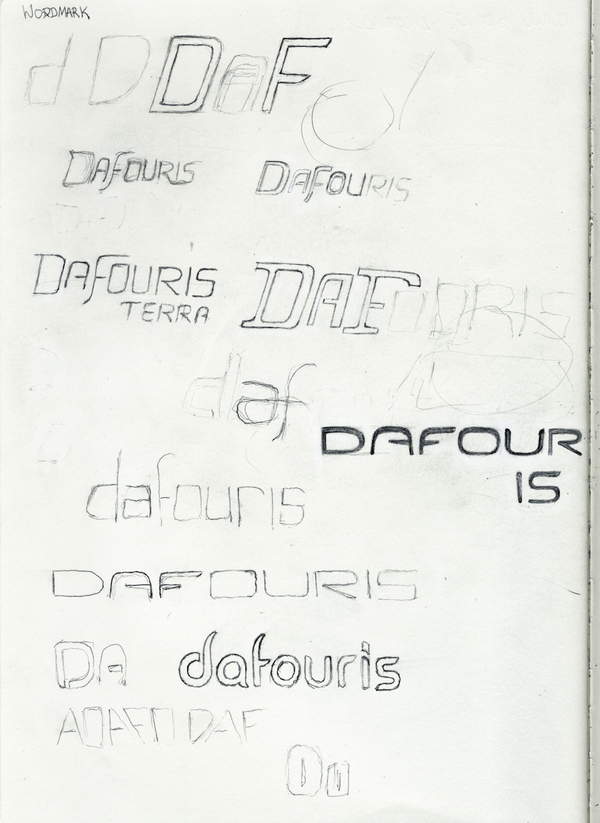 WORDMARK
d D DAF
DAfOURIS DAfOURIS
DAfOURIS
TERRA
DAFOURIS
daf
DAFOUR
IS
dafouris
DAFOURIS
DA dafouris
DAF